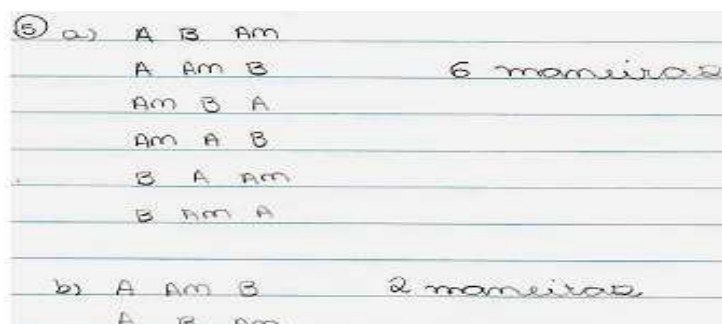 5 a) A B Am
A Am B 6 maneiras
Am B A
Am A B
B A Am
B Am A
b) A Am B 2 maneiras
A B Am